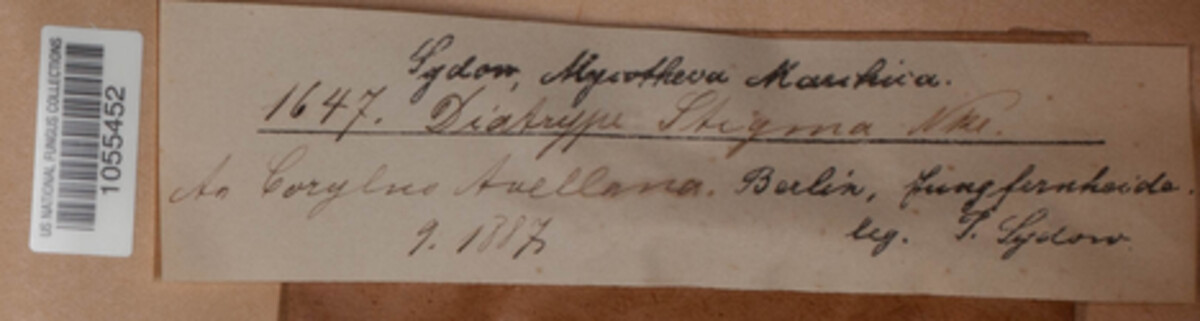 US NATIONAL FUNGUS COLLECTIONS
1055452
Sydow, Mycotheca Marchica.
1647. Diatrype Stigma Nke.
An Corylus Avellana. Berlin, Jungfernheide.
9. 1887,
leg. P. Sydow